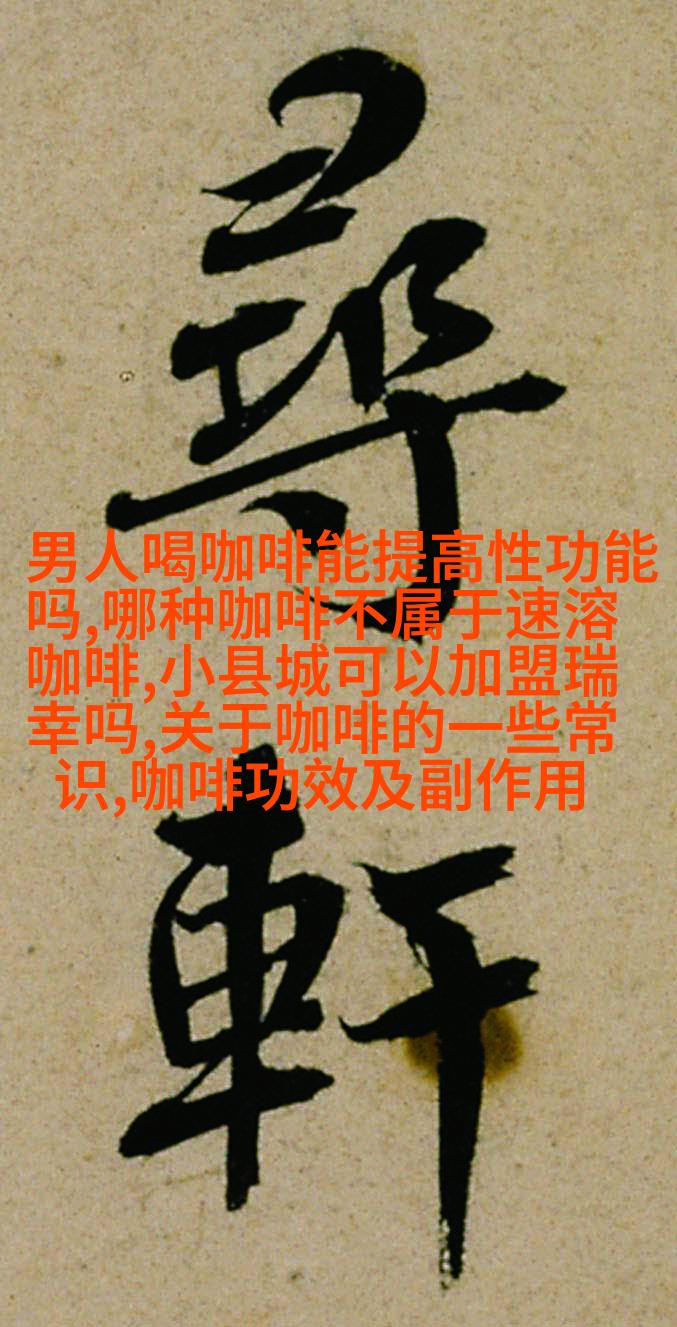 尋
男人喝咖啡能提高性功能
吗,哪种咖啡不属于速溶
咖啡,小县城可以加盟瑞
幸吗,关于咖啡的一些常
识,咖啡功效及副作用
軒